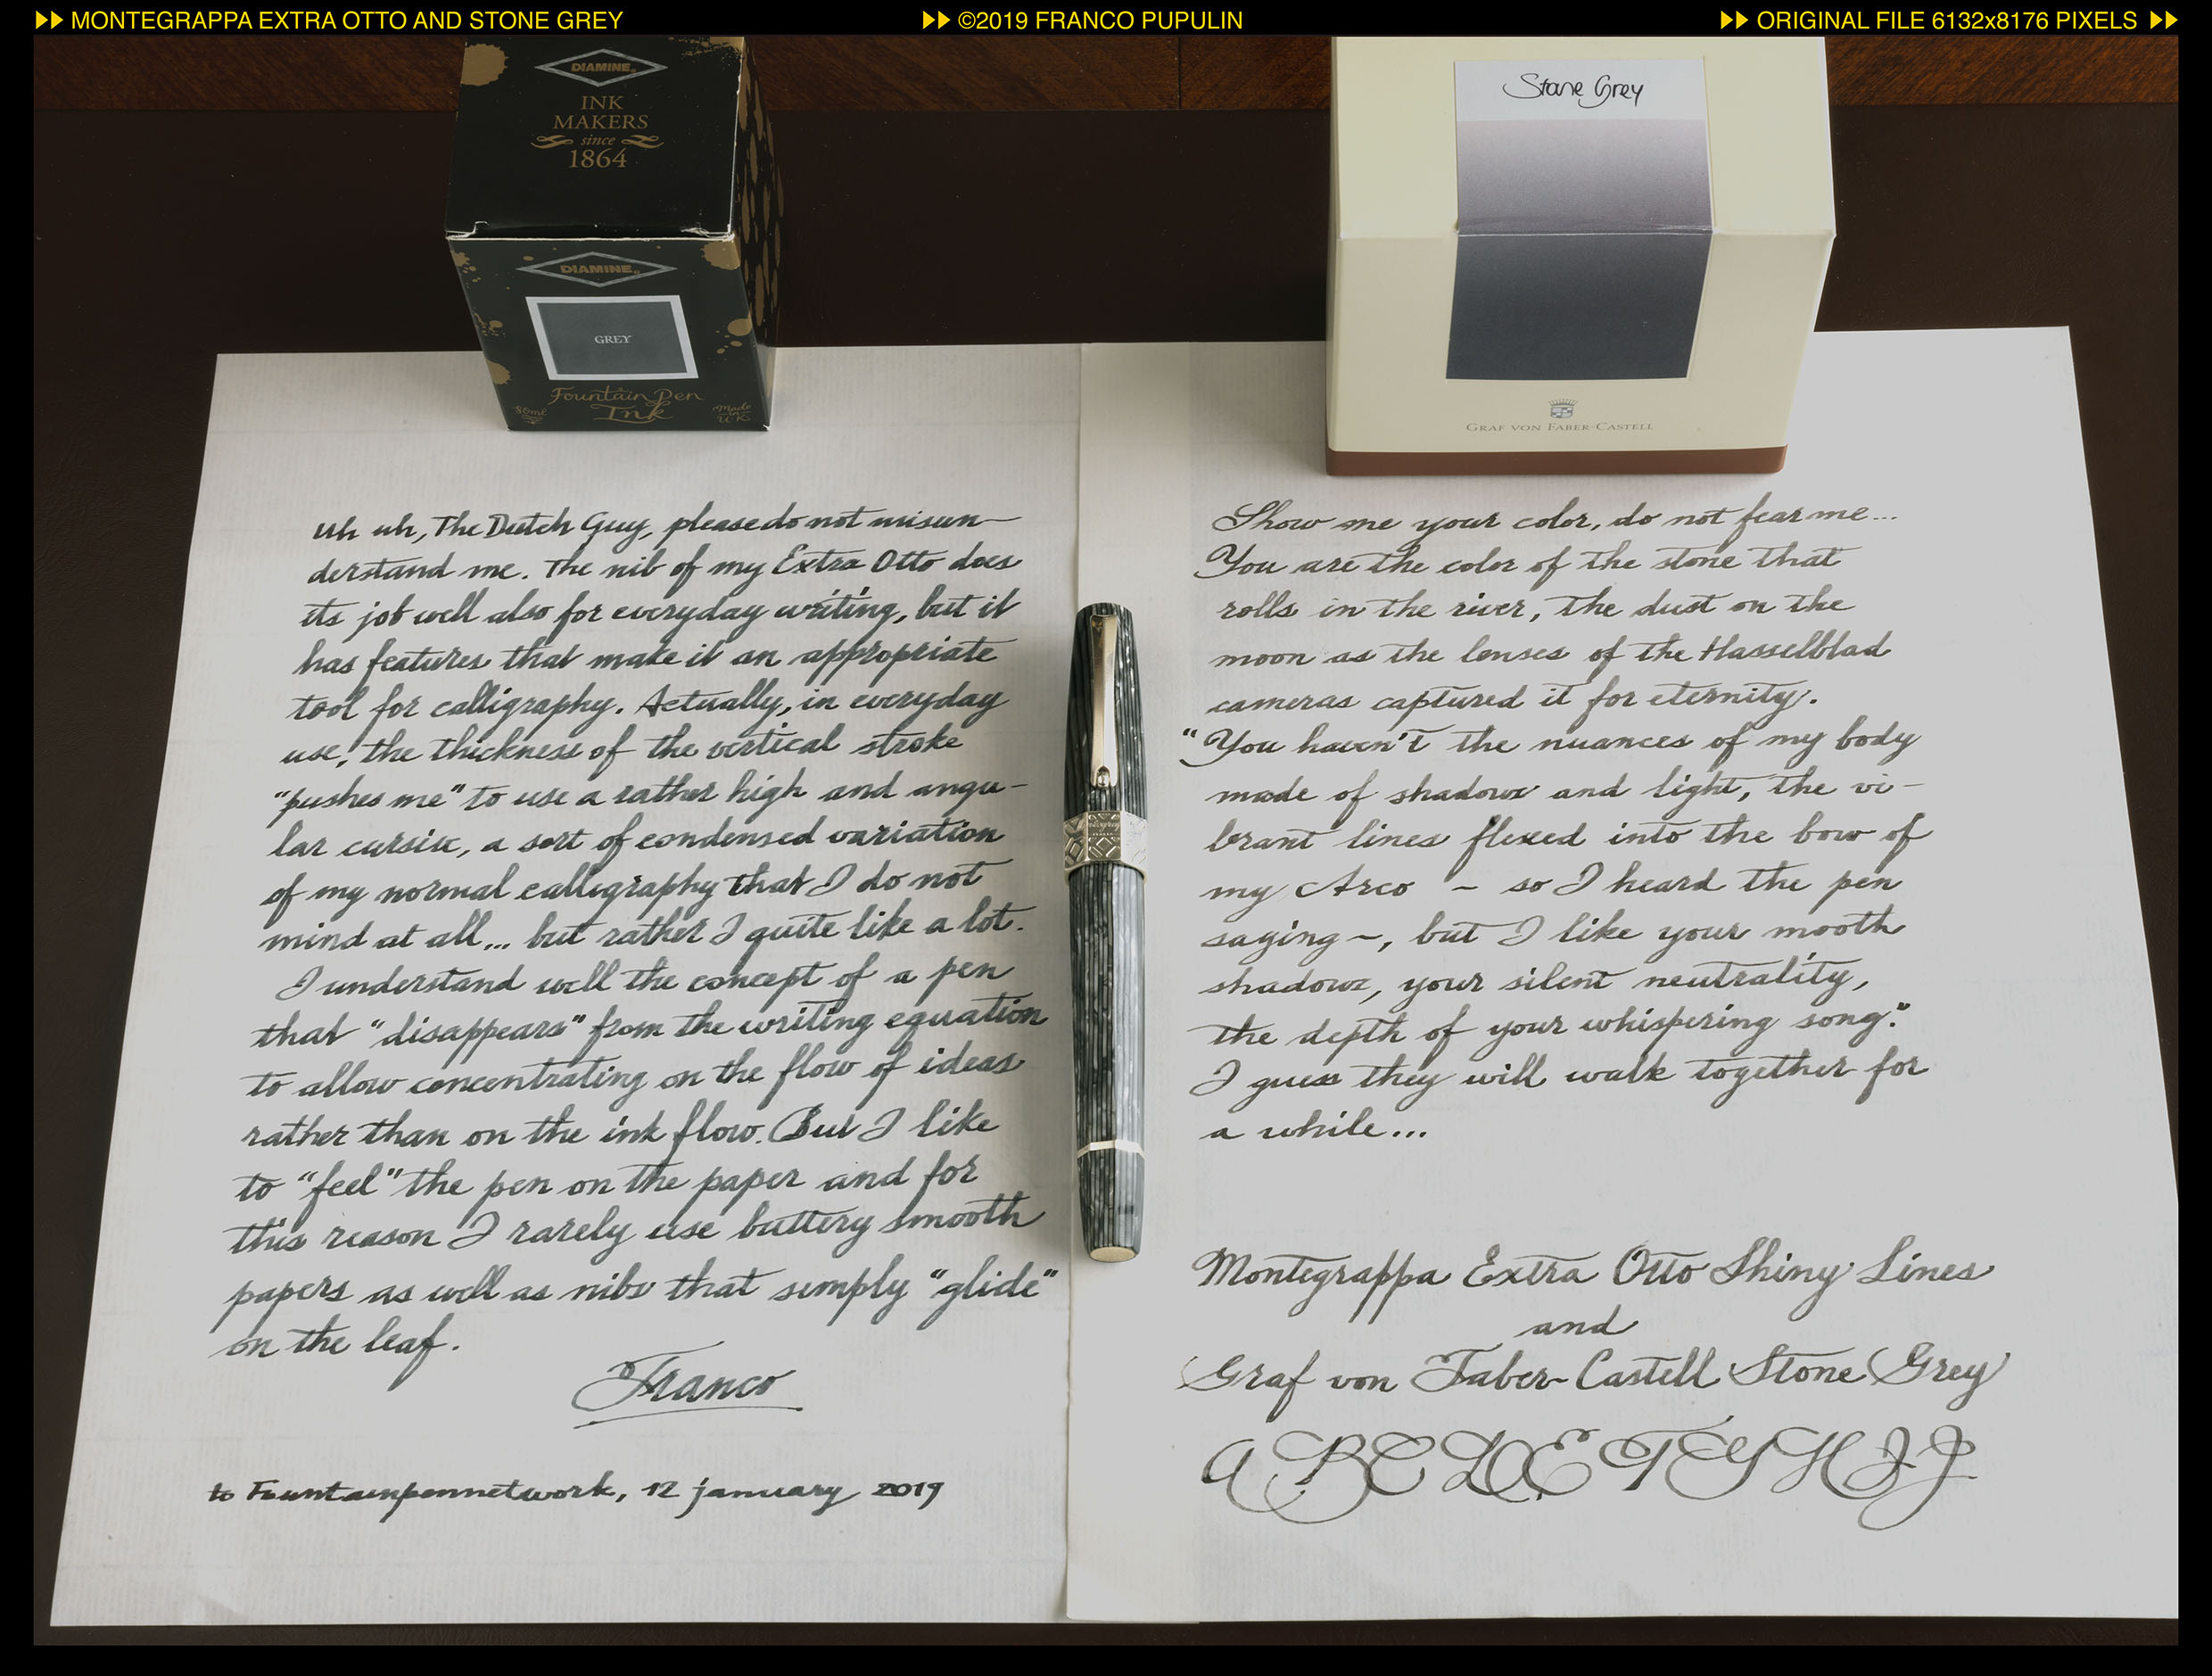 MONTEGRAPPA EXTRA OTTO AND STONE GREY
©2019 FRANCO PUPULIN
ORIGINAL FILE 6132x8176 PIXELS
DIAMINE
INK
MAKERS
since
1864
DIAMINE
GREY
Fountain Pen
Ink
80ml
Made
in
U.K
Stone Grey
GRAF VON FABER-CASTELL
uh uh, The Dutch Guy, please do not misun-
derstand me. The nib of my Extra Otto does
its job well also for everyday writing, but it
has features that make it an appropriate
tool for calligraphy. Actually, in everyday
use, the thickness of the vertical stroke
"pushes me" to use a rather high and angu-
lar cursive, a sort of condensed variation
of my normal calligraphy that I do not
mind at all... but rather I quite like a lot.
I understand well the concept of a pen
that "disappears" from the writing equation
to allow concentrating on the flow of ideas
rather than on the ink flow. But I like
to "feel" the pen on the paper and for
this reason I rarely use buttery smooth
papers as well as nibs that simply "glide"
on the leaf.
Franco
to Fountainpennetwork, 12 january 2019
Show me your color, do not fear me...
You are the color of the stone that
rolls in the river, the dust on the
moon as the lenses of the Hasselblad
cameras captured it for eternity.
"You haven't the nuances of my body
made of shadows and light, the vi-
brant lines flexed into the bow of
my Arco - so I heard the pen
saying -, but I like your mooth
shadows, your silent neutrality,
the depth of your whispering song."
I guess they will walk together for
a while...
Montegrappa Extra Otto Shiny Lines
and
Graf von Faber-Castell Stone Grey
A B C D E F G H I J